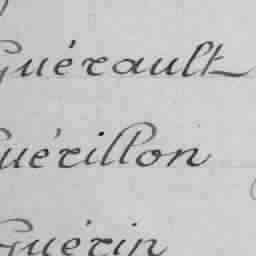 Guérault
Guérillon
Guérin